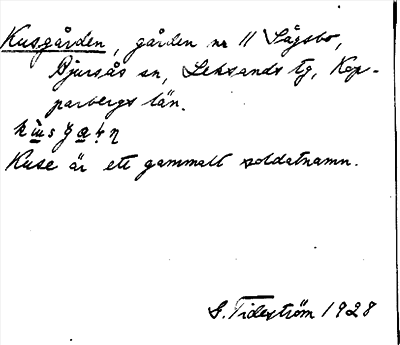 Kusgården, gården nr 11 Sågsbo,
Bjursås sn, Leksands tg, Kop-
parbergs län.
Kuse är ett gammalt soldatnamn.
G. Tideström 1928